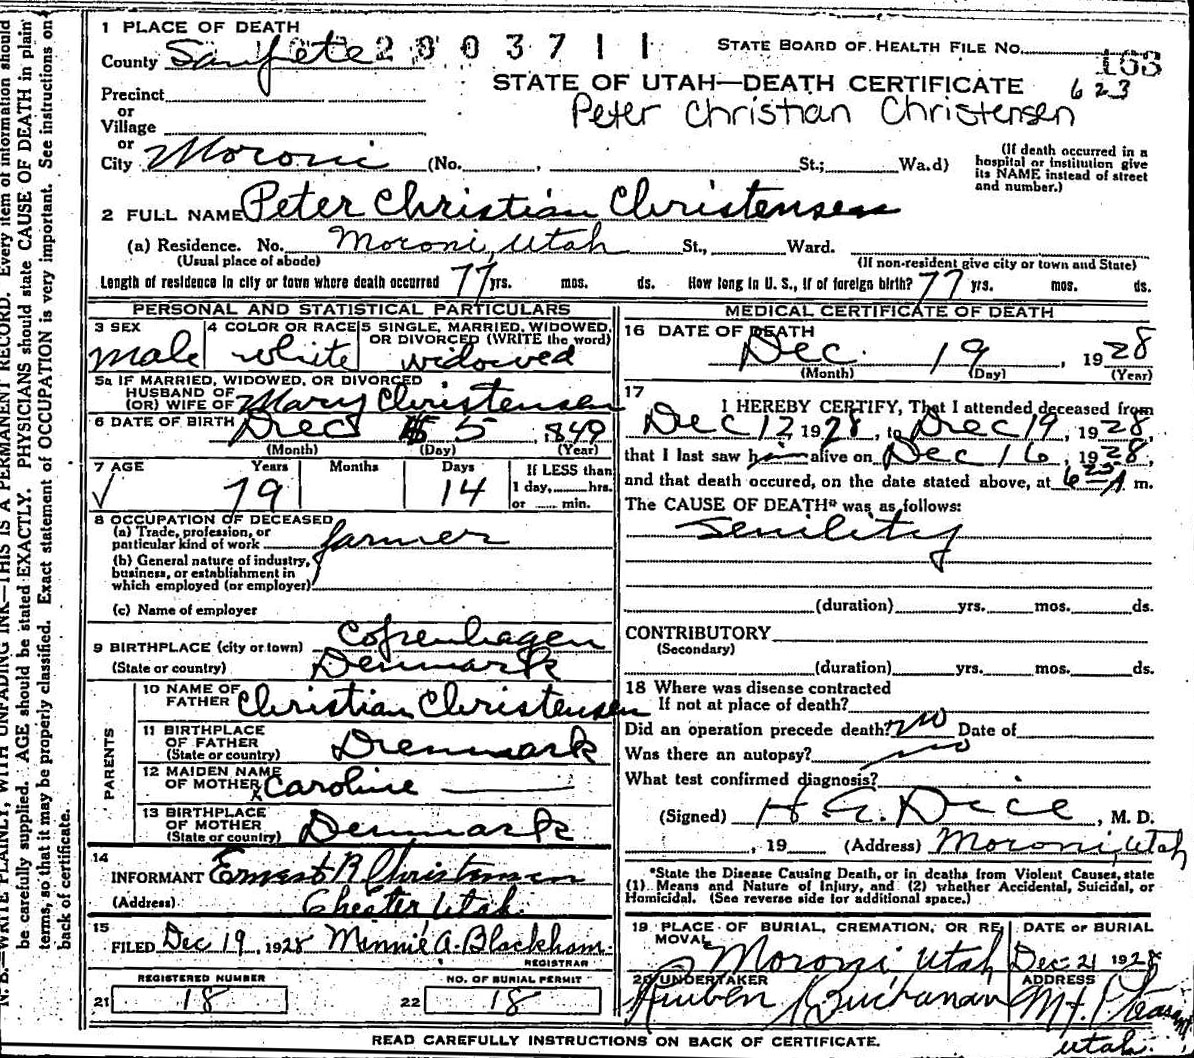 1 PLACE OF DEATH
County Sanpete 2803711 STATE BOARD OF HEALTH FILE NO. 163
STATE OF UTAH—DEATH CERTIFICATE 623
Precinct
or
Village
Peter Christian Christensen
or
City Moroni (No. , St.; Wa.d)
(If death occurred in a
hospital or institution give
its NAME instead of street
and number.)
2 FULL NAME Peter Christian Christensen
(a) Residence. No. Moroni, Utah St., Ward.
(Usual place of abode) (If non-resident give city or town and State)
Length of residence in city or town where death occurred 77 yrs. mos. ds. How long in U. S., if of foreign birth? 77 yrs. mos. ds.
PERSONAL AND STATISTICAL PARTICULARS
3 SEX
male
4 COLOR OR RACE
white
5 SINGLE, MARRIED, WIDOWED,
OR DIVORCED (WRITE the word)
widowed
5a IF MARRIED, WIDOWED, OR DIVORCED
HUSBAND OF
(OR) WIFE OF Mary Christensen
6 DATE OF BIRTH Dec 5 1849
(Month) (Day) (Year)
7 AGE Years Months Days If LESS than
79 14 1 day, hrs.
or min.
8 OCCUPATION OF DECEASED
(a) Trade, profession, or
particular kind of work farmer
(b) General nature of industry,
business, or establishment in
which employed (or employer)
(c) Name of employer
9 BIRTHPLACE (city or town) Copenhagen
(State or country) Denmark
PARENTS
10 NAME OF
FATHER Christian Christensen
11 BIRTHPLACE
OF FATHER Denmark
(State or country)
12 MAIDEN NAME
OF MOTHER Caroline
13 BIRTHPLACE
OF MOTHER Denmark
(State or country)
14
INFORMANT Ernest R Christensen
(Address) Chester Utah
15
FILED Dec 19, 1928 Minnie A. Blackham.
REGISTRAR
REGISTERED NUMBER NO. OF BURIAL PERMIT
21 18 22 18
MEDICAL CERTIFICATE OF DEATH
16 DATE OF DEATH
Dec. 19, 1928
(Month) (Day) (Year)
17
I HEREBY CERTIFY, That I attended deceased from
Dec 12, 1928, to Dec 19, 1928,
that I last saw him alive on Dec 16, 1928,
and that death occured, on the date stated above, at 6 A m.
The CAUSE OF DEATH* was as follows:
Senility
(duration) yrs. mos. ds.
CONTRIBUTORY
(Secondary)
(duration) yrs. mos. ds.
18 Where was disease contracted
If not at place of death?
Did an operation precede death? no Date of
Was there an autopsy? no
What test confirmed diagnosis?
(Signed) H. G. Dice, M. D.
, 19 (Address) Moroni, Utah
*State the Disease Causing Death, or in deaths from Violent Causes, state
(1) Means and Nature of Injury, and (2) whether Accidental, Suicidal, or
Homicidal. (See reverse side for additional space.)
19 PLACE OF BURIAL, CREMATION, OR RE
MOVAL
Moroni Utah
DATE OF BURIAL
Dec 21 1928
20 UNDERTAKER
Reuben Buchanan
ADDRESS
Mt. Pleasant
Utah.
READ CAREFULLY INSTRUCTIONS ON BACK OF CERTIFICATE.
N. B.—WRITE PLAINLY, WITH UNFADING INK—THIS IS A PERMANENT RECORD. Every item of information should
be carefully supplied. AGE should be stated EXACTLY. PHYSICIANS should state CAUSE OF DEATH in plain
terms, so that it may be properly classified. Exact statement of OCCUPATION is very important. See instructions on
back of certificate.